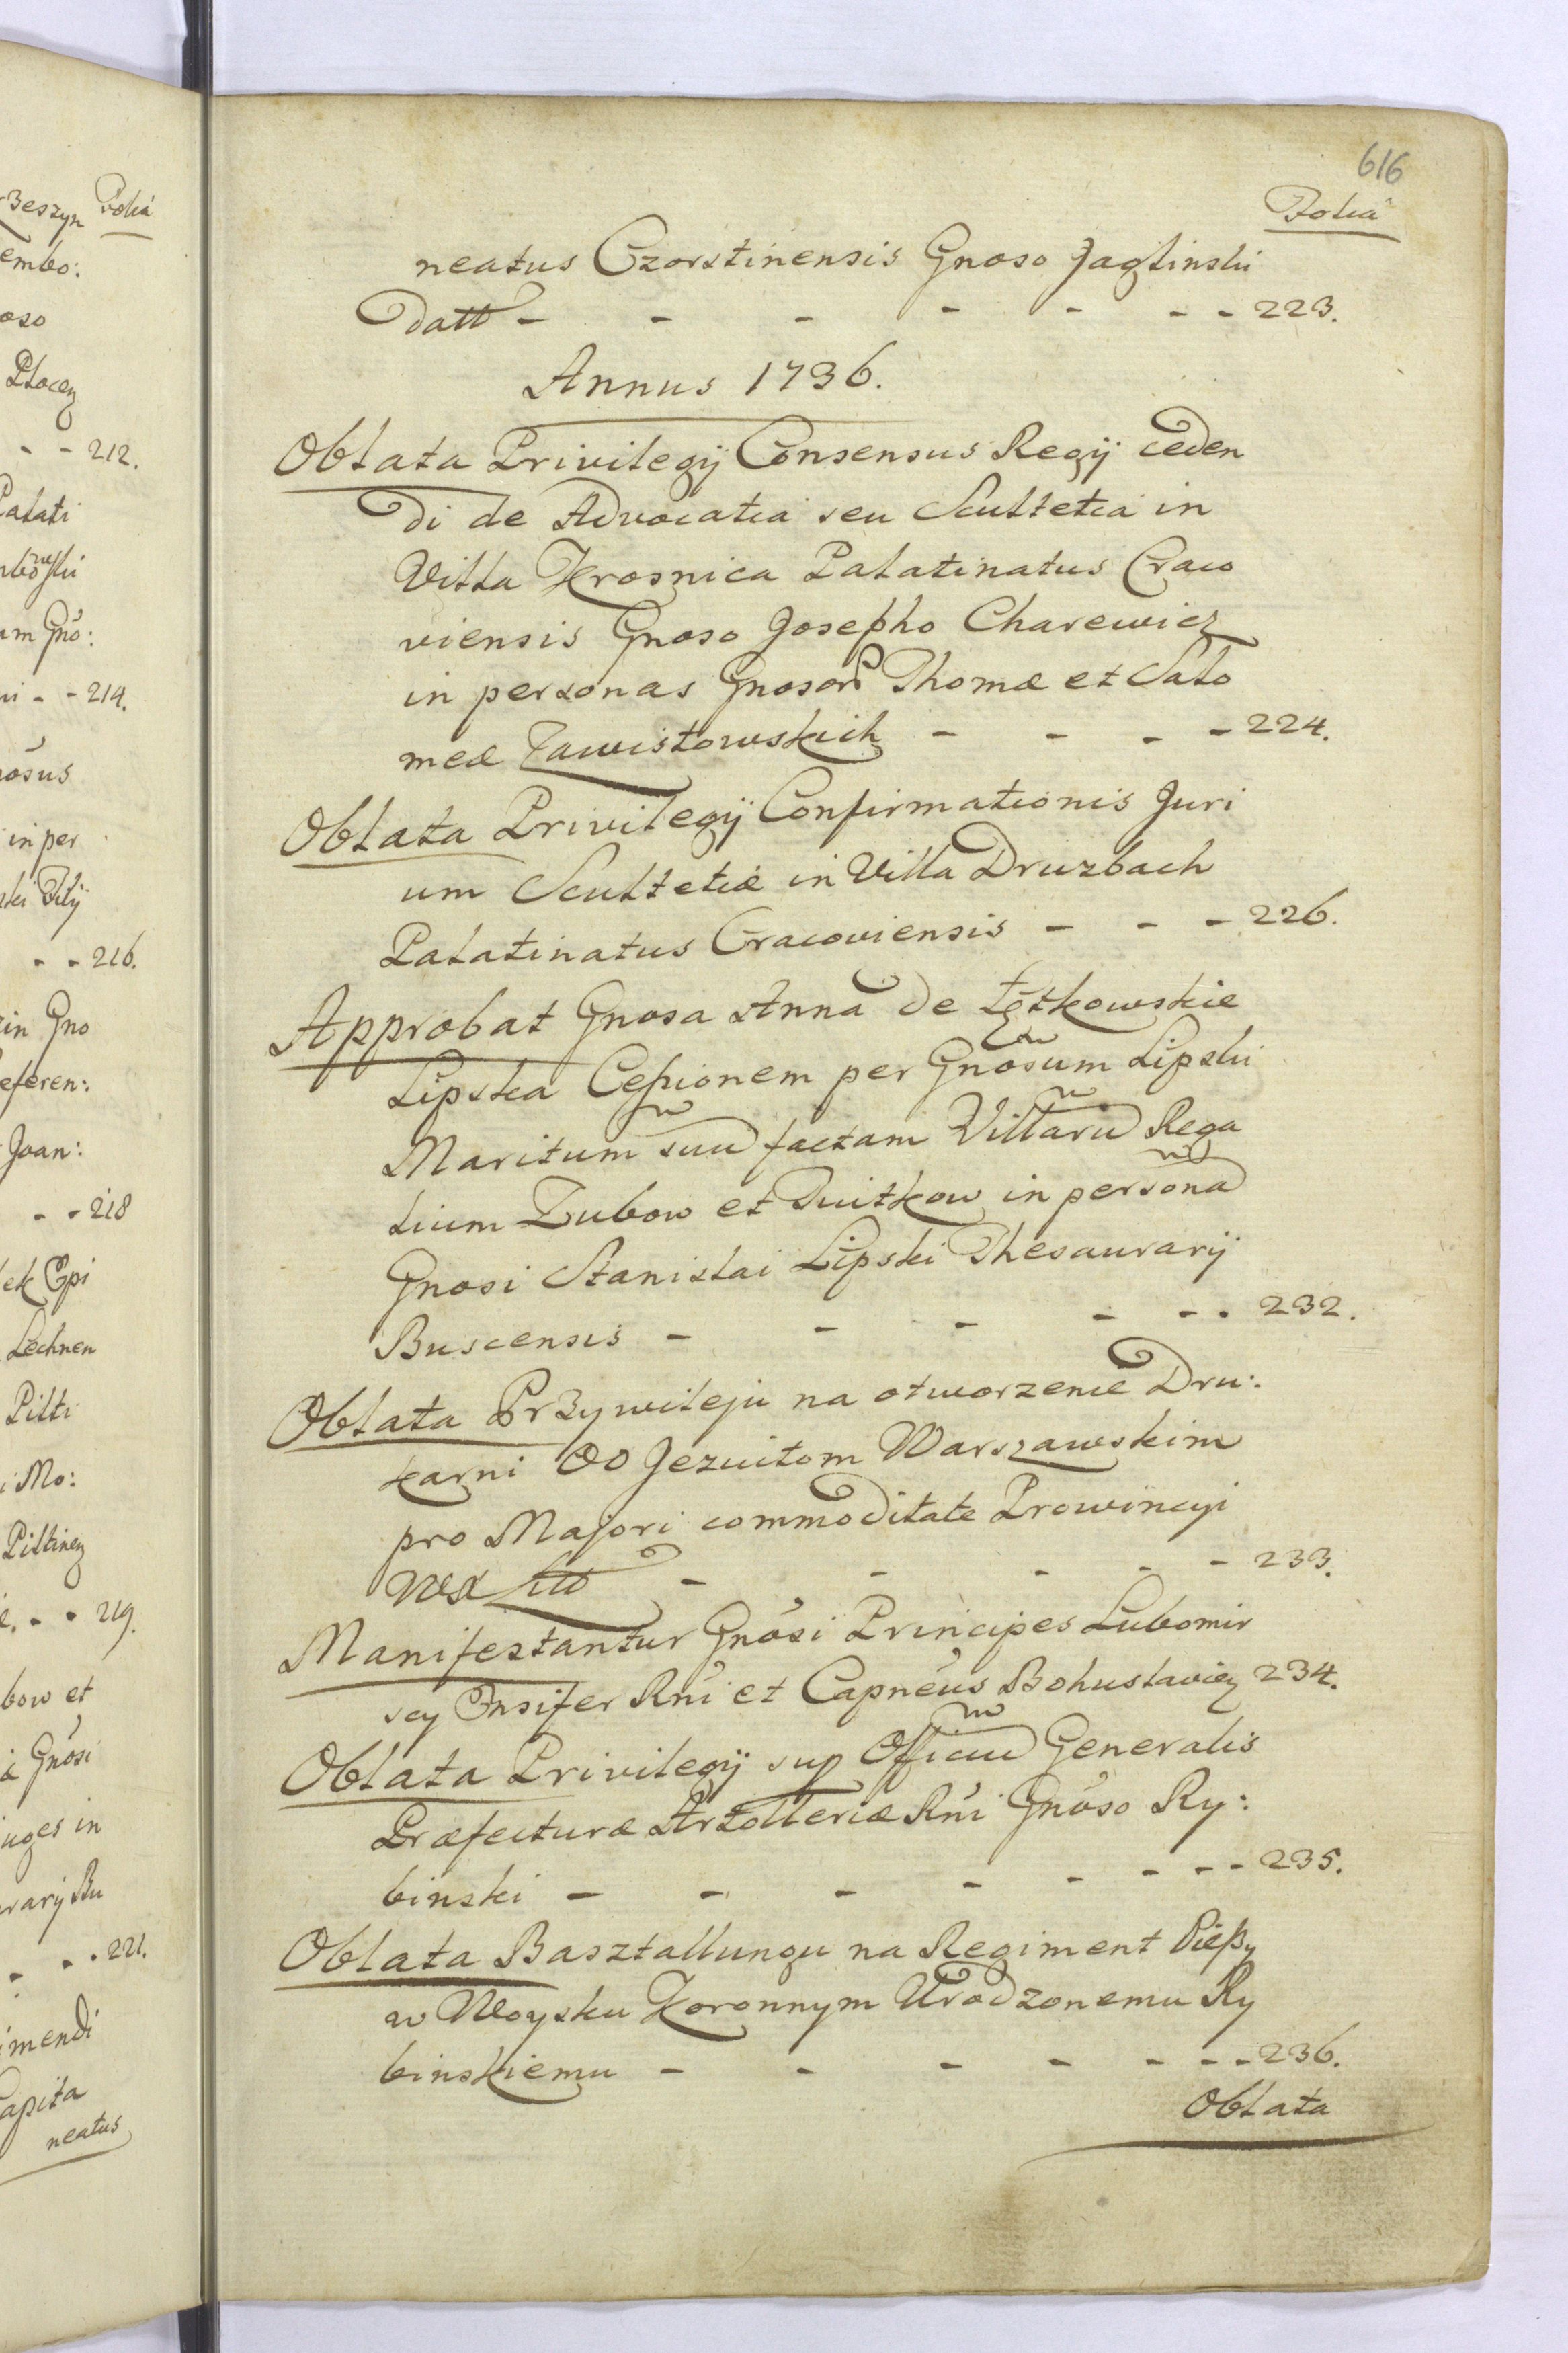 rzeszyn Folia
embo:
oso
Płocen
- - 212.
Palati
mbowski
um Gno:
ni - - 214.
nosus
in per
ski Filij
- - 216.
in Gno
eferen:
Joan:
- - 218
ek Epi
Lechnen
Pilti
i Mo:
Piltinen
e, - - 219.
bow et
a Gnosi
iuges in
rarij Bu
- - - 221.
imendi
Capita
neatus
616
Folia
neatus Czorstinensis Gnoso Jaglinski
Datt - - - - - - - 223.
Annus 1736.
Oblata Privilegij Consensus Regij ceden
di de Advocatia seu Scultetia in
Villa Krosnica Palatinatus Craco
viensis Gnoso Josepho Charewicz
in personas Gnosor Thomæ et Salo
meæ Zawistowskich - - - - 224.
Oblata Privilegij Confirmationis Juri
um Scultetiæ in Villa Druzbach
Palatinatus Cracoviensis - - - 226.
Approbat Gnosa Anna de Łętkowskie
Lipska Cessionem per Gnosum Lipski
Maritum suu factam Villaru Rega
lium Zubow et Dwitkow in persona
Gnosi Stanislai Lipski Thesaurarij
Buscensis - - - - - - 232.
Oblata Przywileju na otworzenie Dru:
karni OO Jezuitom Warszawskim
pro Majori commoditate Prowincyi
WXLitt - - - - - 233.
Manifestantur Gnosi Principes Lubomir
scy Ensifer Rni et Capneus Bohuslavien 234.
Oblata Privilegij sup Officiu Generalis
Præfecturæ Artolleriæ Rni Gnoso Ry:
binski - - - - - - - - 235.
Oblata Basztallungu na Regiment Pieszy
w Woysku Koronnym Urodzonemu Ry
binskiemu - - - - - - - 236.
Oblata